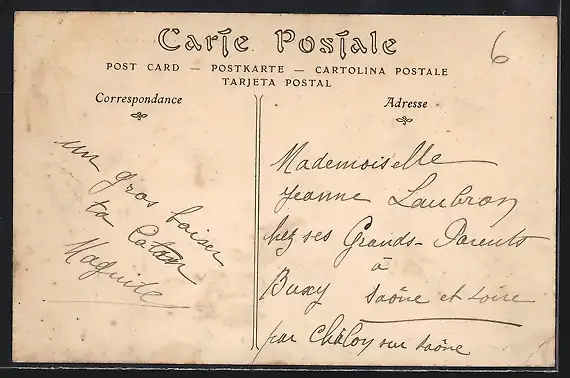 Carte Postale
POST CARD — POSTKARTE — CARTOLINA POSTALE
TARJETA POSTAL
6
Correspondance
un gros baiser
ta
Adresse
Mademoiselle
Jeanne Laubron
chez ses Grands-Parents
à
Buxy Saône et Loire
par Châlon sur Saône